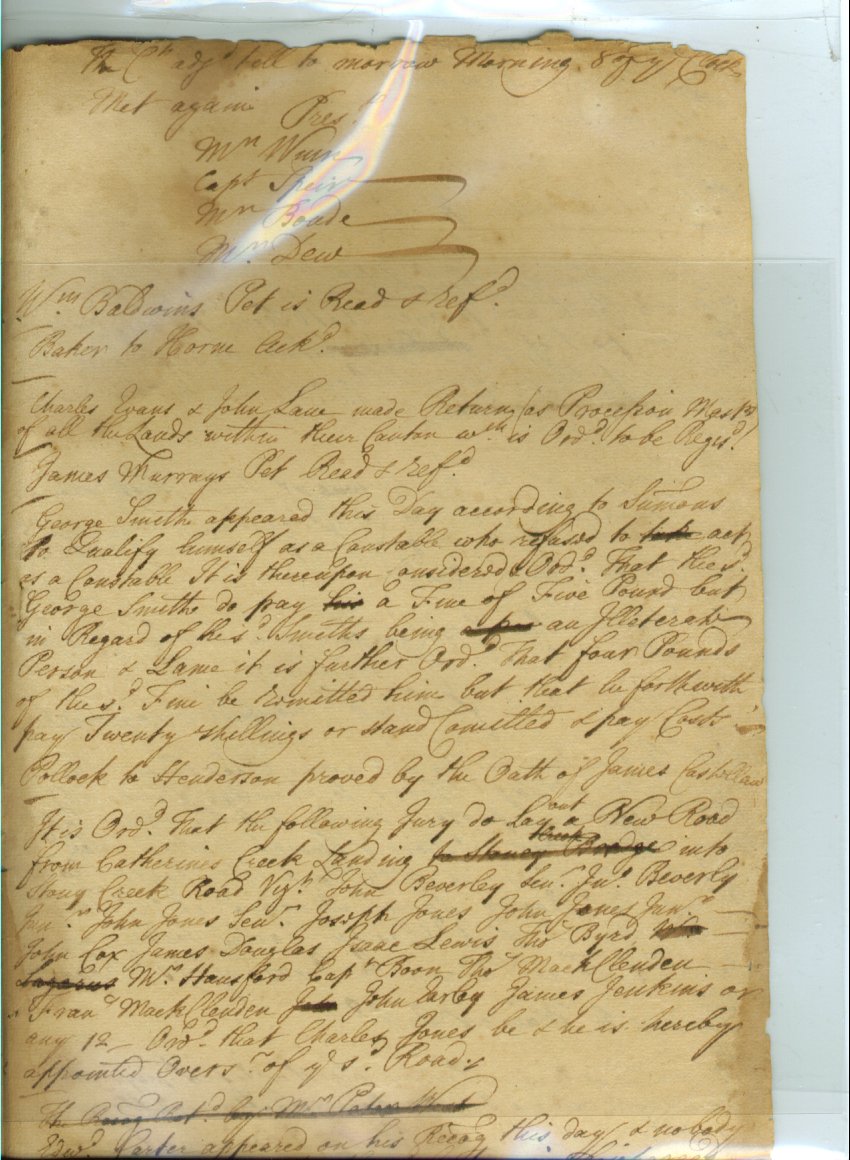 The Ct adjd till to morrow Morning 8 of ye Clock
Met again Prest
Mr Winn
Capt Speir
Mr Boude
Mr Dew
Wm Baldwins Pet is Read & refd.
Baker to Horne Ackd.
Charles Evans & John Lane made Return (as Procession Mastrs
of all the Lands within their Canton wch is Ordd. to be Regisd.)
James Murrays Pet Read & refd.
George Smith appeared this Day according to Sumons
to Qualify himself as a Constable who refused to act
as a Constable It is thereupon considered & Ordd. That the sd.
George Smith do pay his a Fine of Five Pound but
in Regard of the sd. Smiths being an Illeterate
Person & Lame it is further Ordd. That four Pounds
of the sd. Fine be remitted him but that he forthwith
pay Twenty shillings or stand Comitted & pay Costs
Pollock to Henderson proved by the Oath of James Castellaw
It is Ordd. That the following Jury do Lay out a New Road
from Catherines Creek Landing to Stoney Bridge into
Stony Creek Road Vizt. John Beverley Senr. Jno. Beverly
Junr. John Jones Senr. Joseph Jones John Jones Junr
John Cox James Douglas Isaac Lewis Tho Byrd Wm
Lazarus Wm Hansford Capt Boon Tho MackClenden
Frans MackClenden John John Early James Jenkins or
any 12 Ordd. that Charles Jones be & he is hereby
appointed Oversr of ye sd. Road
The Recog Retd. by Mr Peter West
Edwd. Carter appeared on his Recog this day & nobody